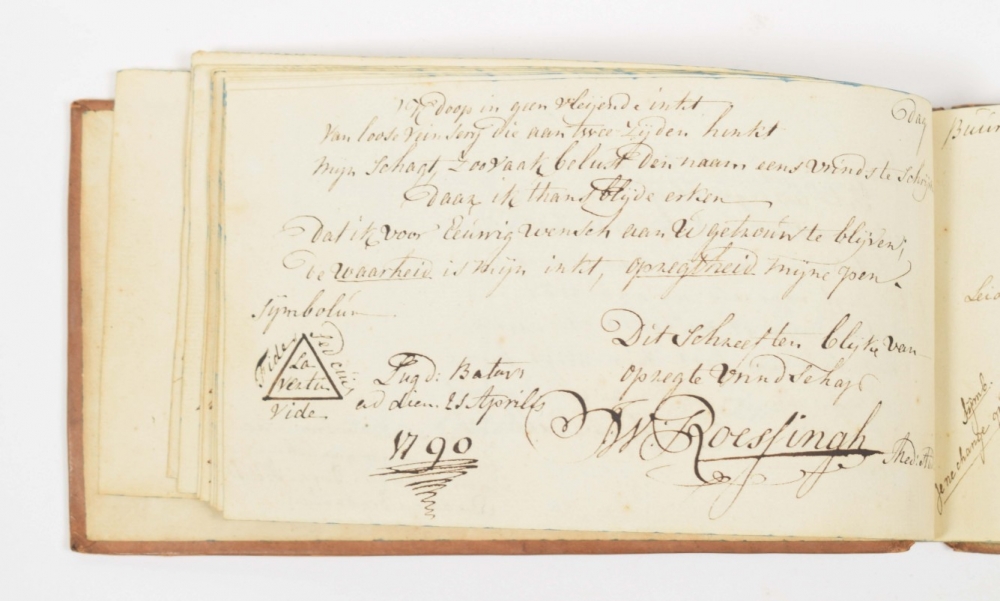 Ik doop in geen vleijende inkt
Van loose veinserij die aan twee Zijden hinkt
Mijn Schagt, Zoo vaak belust Den naam eens Vrinds te
Daar ik thans blijde erken
Dat ik voor Eeuwig wensch aan U getrouw te blijven;
de Waarheid is mijn inkt, opregtheid mijne pen.
Symbolum
Fide Sed cui
La
Vertu
Vide
Lugd: Batav:
ad diem 21 Aprilis
1790
Dit Schreef ten blijke van
opregte Vrindschap
W: Roessingh
dag
Buur
Lei
Symb.
Je ne change